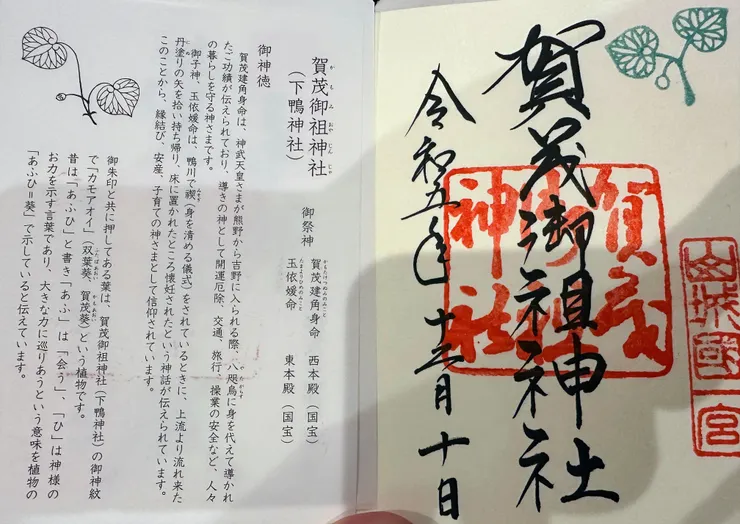 山城國一宮
賀茂御祖神社
賀茂御祖神社
令和五年十二月十日
賀茂御祖神社
（下鴨神社）
御祭神　賀茂建角身命　西本殿（国宝）
玉依媛命　東本殿（国宝）
御神徳
賀茂建角身命は、神武天皇さまが熊野から吉野に入られる際、八咫烏に身を代えて導かれ
たご功績が伝えられており、導きの神として開運厄除、交通、旅行、操業の安全など、人々
の暮らしを守る神さまです。
御子神、玉依媛命は、鴨川で禊（身を清める儀式）をされているときに、上流より流れ来た
丹塗りの矢を拾い持ち帰り、床に置かれたところ懐妊されたという神話が伝えられています。
このことから、縁結び、安産、子育ての神さまとして信仰されています。
御朱印と共に押してある葉は、賀茂御祖神社（下鴨神社）の御神紋
で「カモアオイ」（双葉葵、賀茂葵）という植物です。
昔は「あふひ」と書き「あふ」は「会う」、「ひ」は神様の
お力を示す言葉であり、大きな力に巡りあうという意味を植物の
「あふひ＝葵」で示していると伝えています。